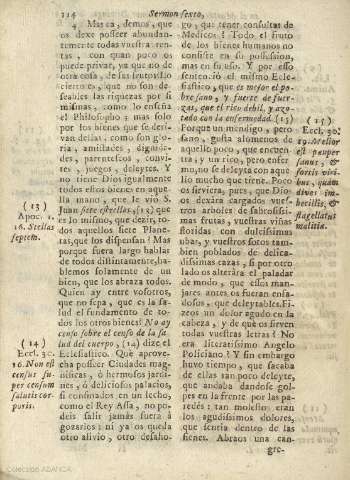 114 Sermon sexto,
4 Mas ea, demos, que
os dexe posseer abundan-
temente todas vuestra ren-
tas, con quan poco os
puede privar, ya que no de
otra cosa, de sus frutos! Lo
cierto es, que no son de-
seables las riquezas por si
mismas, como lo enseña
el Philosopho; mas solo
por los bienes que se deri-
van de ellas, como son glo-
ria, amistades, dignida-
des, parentescos, convi-
tes, juegos, deleytes. Y
no tiene Dios igualmente
todos estos bienes en aque-
lla mano, que le viò S.
Juan siete estrellas, (13) que
es lo mismo, que dezir, to-
dos aquellos siete Plane-
tas, que los dispensan? Mas
porque fuera largo hablar
de todos distintamente, ha-
blemos solamente de un
bien, que los abraza todos.
Quien ay entre vosotros,
que no sepa, que es la sa-
lud el fundamento de to-
dos los otros bienes? No ay
censo sobre el censo de la sa-
lud del cuerpo, (14) dize el
Eclesiastico. Què aprove-
cha posseer Ciudades mag-
nificas, ò hermosos jardi-
nes, ò deliciosos palacios,
si confinados en un lecho,
como el Rey Assa, no po-
deis salir jamàs fuera à
gozarlos: ni ya os queda
otro alivio, otro desaho-
(13)
Apoc. 1.
16. Stellas
septem.
(14)
Eccl. 30.
16. Non est
census su-
per censum
salutis cor-
poris.
go, que tener consultas de
Medicos? Todo el fruto
de los bienes humanos no
consiste en su possession,
mas en su uso. Y por esso
sentenciò el mismo Ecle-
siastico, que es mejor el po-
bre sano, y fuerte de fuer-
ças, que el rico debil, y azo-
tado con la enfermedad. (15)
Porque un mendigo, pero
sano, gusta alomenos de
aquello poco, que encuen-
tra; y un rico, pero enfer-
mo, no se deleyta con aque-
llo mucho que tiene. Poco
os sirviera, pues, que Dios
os dexàra cargados vues-
tros arboles de sabrosissi-
mas frutas, vuestras viñas
floridas con dulcissimas
ubas, y vuestros sotos tam-
bien poblados de delica-
dissimas cazas, si por otro
lado os alterára el paladar
de modo, que essos man-
jares antes os fueran enfa-
dosos, que deleytables. Ti-
zeos un dolor agudo en la
cabeza, y de què os sirven
todas vuestras letras? No
era literatissimo Angelo
Policiano? Y sin embargo
huvo tiempo, que sacaba
de ellas tan poco deleyte,
que andaba dandose gol-
pes en la frente por las pa-
redes; tan molestos eran
los agudissimos dolores,
que sentia dentro de las
sienes. Abraos una can-
gre-
(15)
Eccl. 30.
19. Melior
est pauper
sanus, &
fortis viri-
bus, quàm
dives im-
becillis, &
flagellatus
malitia.
Colección ADARCA